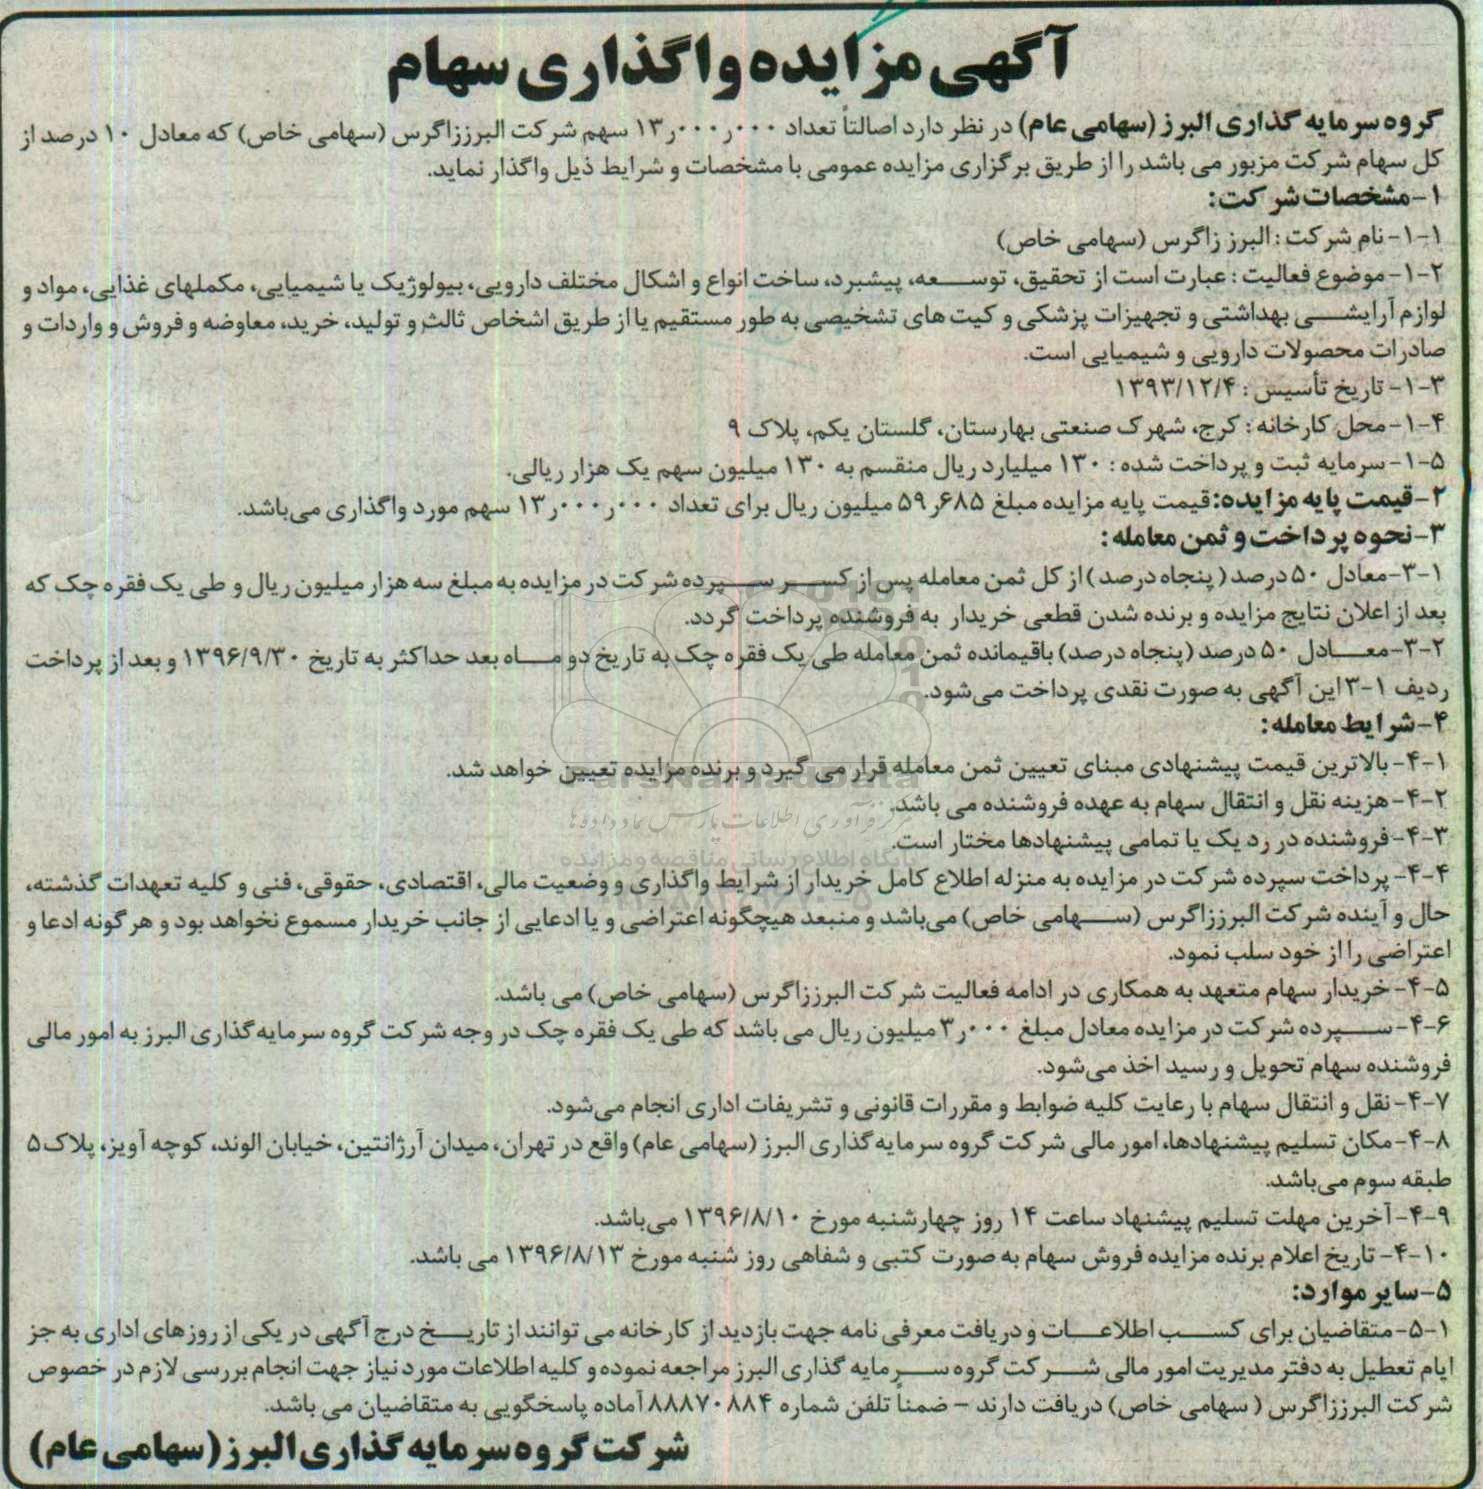 آگهی مزایده واگذاری سهام
گروه سرمایه گذاری البرز (سهامی عام) در نظر دارد اصالتاً تعداد ۱۳٫۰۰۰٫۰۰۰ سهم شرکت البرززاگرس (سهامی خاص) که معادل ۱۰ درصد از
کل سهام شرکت مزبور می باشد را از طریق برگزاری مزایده عمومی با مشخصات و شرایط ذیل واگذار نماید.
۱-مشخصات شرکت:
۱-۱-نام شرکت : البرز زاگرس (سهامی خاص)
۱-۲-موضوع فعالیت : عبارت است از تحقیق، توسعه، پیشبرد، ساخت انواع و اشکال مختلف دارویی، بیولوژیک یا شیمیایی، مکملهای غذایی، مواد و
لوازم آرایشی بهداشتی و تجهیزات پزشکی و کیت های تشخیصی به طور مستقیم یا از طریق اشخاص ثالث و تولید، خرید، معاوضه و فروش و واردات و
صادرات محصولات دارویی و شیمیایی است.
۱-۳- تاریخ تأسیس : ۱۳۹۳/۱۲/۴
۱-۴-محل کارخانه : کرج، شهرک صنعتی بهارستان، گلستان یکم، پلاک ۹
۱-۵-سرمایه ثبت و پرداخت شده : ۱۳۰ میلیارد ریال منقسم به ۱۳۰ میلیون سهم یک هزار ریالی.
۲-قیمت پایه مزایده:قیمت پایه مزایده مبلغ ۵۹٫۶۸۵ میلیون ریال برای تعداد ۱۳٫۰۰۰٫۰۰۰ سهم مورد واگذاری می‌باشد.
۳-نحوه پرداخت و ثمن معامله :
۳-۱-معادل ۵۰ درصد ( پنجاه درصد ) از کل ثمن معامله پس از کسر سپرده شرکت در مزایده به مبلغ سه هزار میلیون ریال و طی یک فقره چک که
بعد از اعلان نتایج مزایده و برنده شدن قطعی خریدار به فروشنده پرداخت گردد.
۳-۲-معادل ۵۰ درصد (پنجاه درصد) باقیمانده ثمن معامله طی یک فقره چک به تاریخ دو ماه بعد حداکثر به تاریخ ۱۳۹۶/۹/۳۰ و بعد از پرداخت
ردیف ۳-۱ این آگهی به صورت نقدی پرداخت می‌شود.
۴-شرایط معامله :
۴-۱-بالاترین قیمت پیشنهادی مبنای تعیین ثمن معامله قرار می گیرد و برنده مزایده تعیین خواهد شد.
ParsNamadData
۴-۲-هزینه نقل و انتقال سهام به عهده فروشنده می باشد.
مرکز فرآوری اطلاعات پارس نماد داده ها
۴-۳-فروشنده در رد یک یا تمامی پیشنهادها مختار است.
پایگاه اطلاع رسانی مناقصه و مزایده
۴-۴- پرداخت سپرده شرکت در مزایده به منزله اطلاع کامل خریدار از شرایط واگذاری و وضعیت مالی، اقتصادی، حقوقی، فنی و کلیه تعهدات گذشته،
حال و آینده شرکت البرززاگرس (سهامی خاص) می‌باشد و منبعد هیچگونه اعتراضی و یا ادعایی از جانب خریدار مسموع نخواهد بود و هر گونه ادعا و
اعتراضی را از خود سلب نمود.
۴-۵-خریدار سهام متعهد به همکاری در ادامه فعالیت شرکت البرززاگرس (سهامی خاص) می باشد.
۴-۶-سپرده شرکت در مزایده معادل مبلغ ۳٫۰۰۰ میلیون ریال می باشد که طی یک فقره چک در وجه شرکت گروه سرمایه گذاری البرز به امور مالی
فروشنده سهام تحویل و رسید اخذ می‌شود.
۴-۷-نقل و انتقال سهام با رعایت کلیه ضوابط و مقررات قانونی و تشریفات اداری انجام می‌شود.
۴-۸-مکان تسلیم پیشنهادها، امور مالی شرکت گروه سرمایه گذاری البرز (سهامی عام) واقع در تهران، میدان آرژانتین، خیابان الوند، کوچه آویز، پلاک ۵
طبقه سوم می‌باشد.
۴-۹-آخرین مهلت تسلیم پیشنهاد ساعت ۱۴ روز چهارشنبه مورخ ۱۳۹۶/۸/۱۰ می‌باشد.
۴-۱۰- تاریخ اعلام برنده مزایده فروش سهام به صورت کتبی و شفاهی روز شنبه مورخ ۱۳۹۶/۸/۱۳ می باشد.
۵-سایر موارد:
۵-۱-متقاضیان برای کسب اطلاعات و دریافت معرفی نامه جهت بازدید از کارخانه می توانند از تاریخ درج آگهی در یکی از روزهای اداری به جز
ایام تعطیل به دفتر مدیریت امور مالی شرکت گروه سرمایه گذاری البرز مراجعه نموده و کلیه اطلاعات مورد نیاز جهت انجام بررسی لازم در خصوص
شرکت البرززاگرس ( سهامی خاص) دریافت دارند – ضمناً تلفن شماره ۸۸۸۷۰۸۸۴ آماده پاسخگویی به متقاضیان می باشد.
شرکت گروه سرمایه گذاری البرز (سهامی عام)